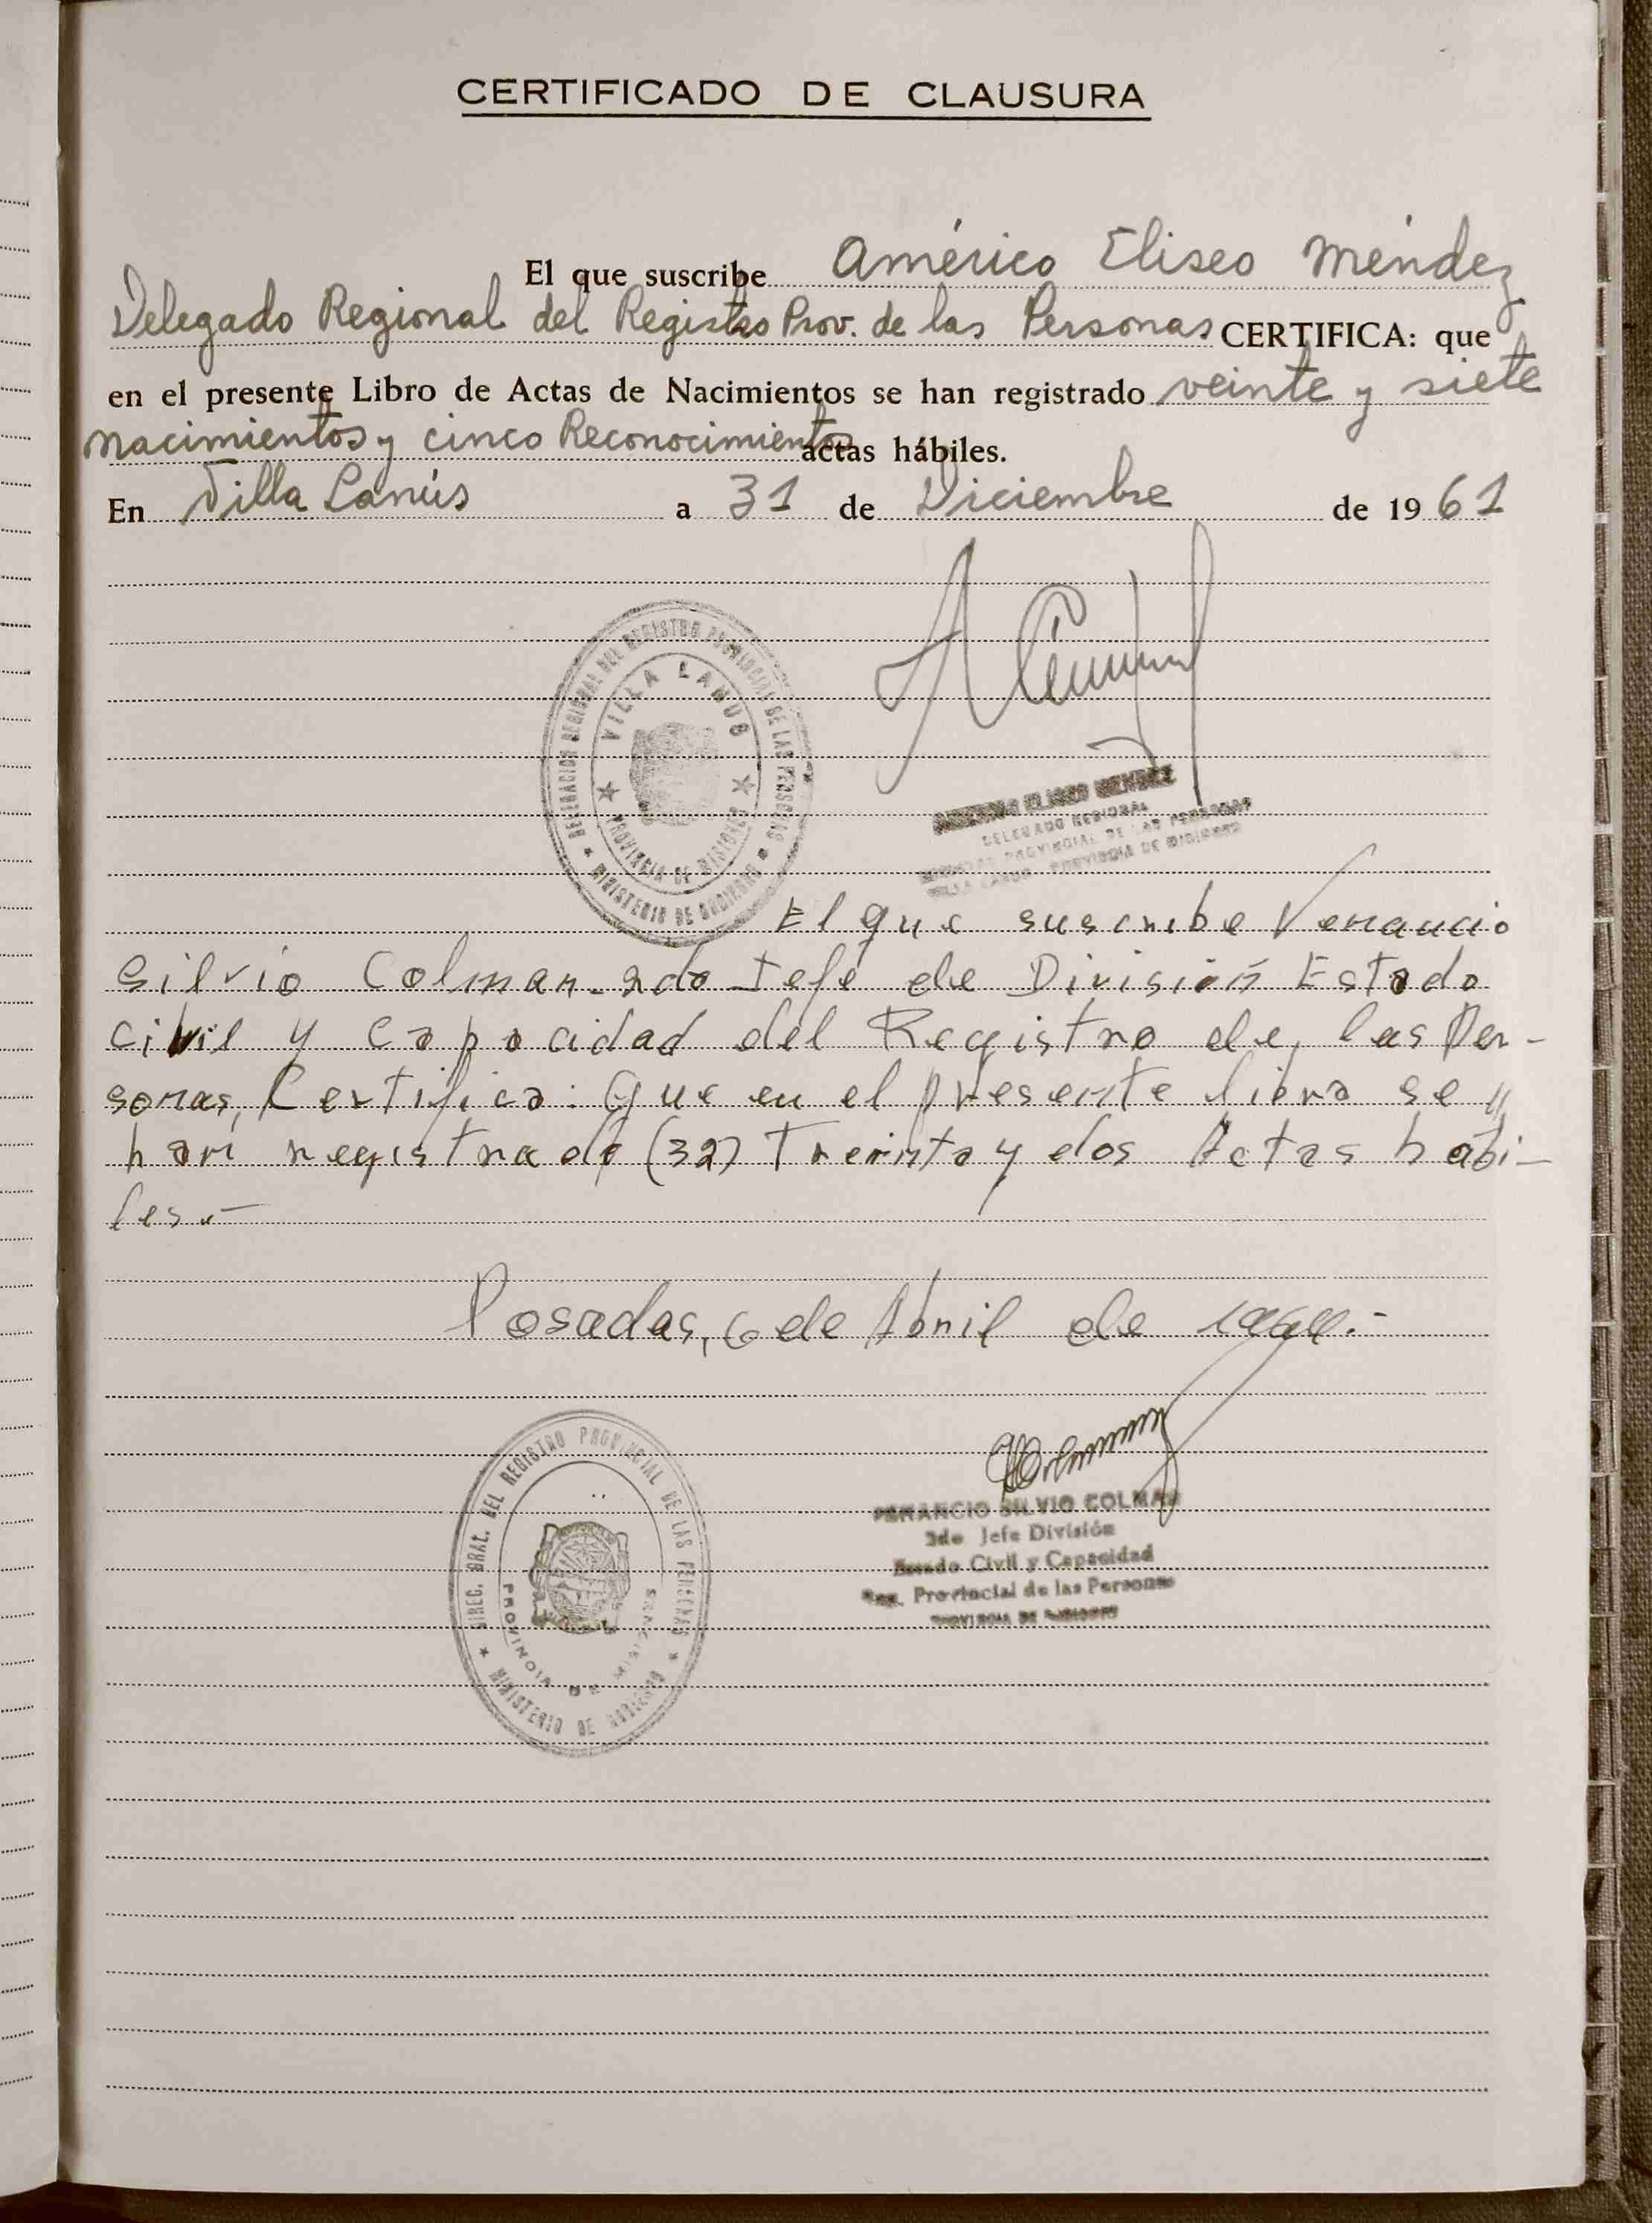 CERTIFICADO DE CLAUSURA
El que suscribe Américo Eliseo Méndez
Delegado Regional del Registro Prov. de las Personas CERTIFICA: que
en el presente Libro de Actas de Nacimientos se han registrado veinte y siete
nacimientos y cinco Reconocimientos actas hábiles.
En Villa Lanús a 31 de Diciembre de 1961
DELEGACION REGIONAL DEL REGISTRO PROVINCIAL DE LAS PERSONAS
VILLA LANUS
PROVINCIA DE MISIONES
MINISTERIO DE GOBIERNO
AMERICO ELISEO MENDEZ
DELEGADO REGIONAL
REGISTRO PROVINCIAL DE LAS PERSONAS
VILLA LANUS PROVINCIA DE MISIONES
El que suscribe Venancio
Silvio Colman. 2do Jefe de División Estado
Civil y Capacidad del Registro de las Per-
sonas, Certifica: Que en el presente libro se
han registrado (32) Treinta y dos Actas hábi-
les.-
Posadas, 6 de Abril de
VENANCIO SILVIO COLMAN
2do Jefe División
Estado Civil y Capacidad
Reg. Provincial de las Personas
PROVINCIA DE MISIONES
DIREC. GRAL. DEL REGISTRO PROVINCIAL DE LAS PERSONAS
PROVINCIA DE MISIONES
MINISTERIO DE GOBIERNO